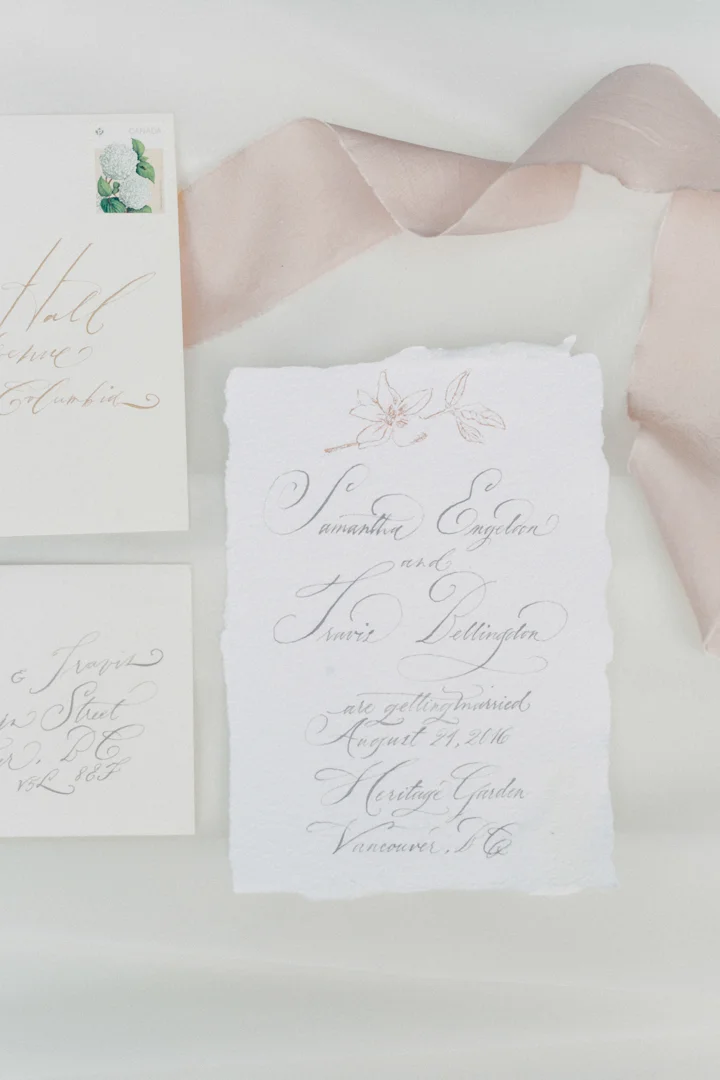 CANADA
Hall
Columbia
& Travis
Street
BC
V5L 8E7
Samantha Engeloon
and
Travis Bellingdon
are getting married
August 24, 2016
Heritage Garden
Vancouver, BC